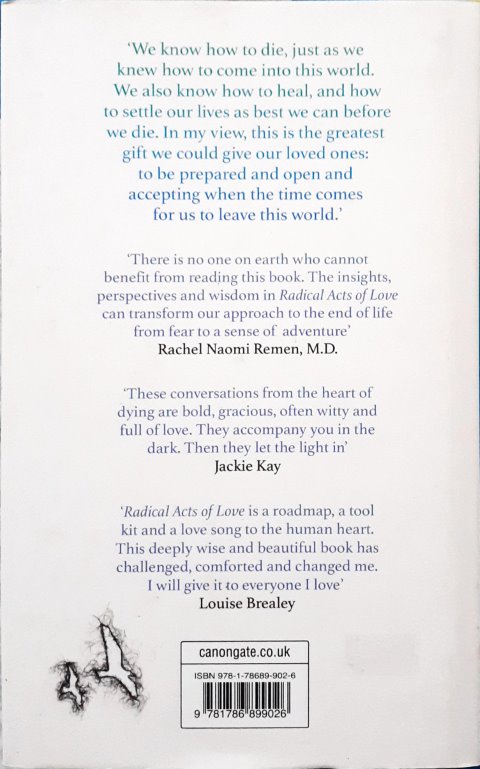 ‘We know how to die, just as we
knew how to come into this world.
We also know how to heal, and how
to settle our lives as best we can before
we die. In my view, this is the greatest
gift we could give our loved ones:
to be prepared and open and
accepting when the time comes
for us to leave this world.’
‘There is no one on earth who cannot
benefit from reading this book. The insights,
perspectives and wisdom in Radical Acts of Love
can transform our approach to the end of life
from fear to a sense of adventure’
Rachel Naomi Remen, M.D.
‘These conversations from the heart of
dying are bold, gracious, often witty and
full of love. They accompany you in the
dark. Then they let the light in’
Jackie Kay
‘Radical Acts of Love is a roadmap, a tool
kit and a love song to the human heart.
This deeply wise and beautiful book has
challenged, comforted and changed me.
I will give it to everyone I love’
Louise Brealey
canongate.co.uk
ISBN 978-1-78689-902-6
9 781786 899026